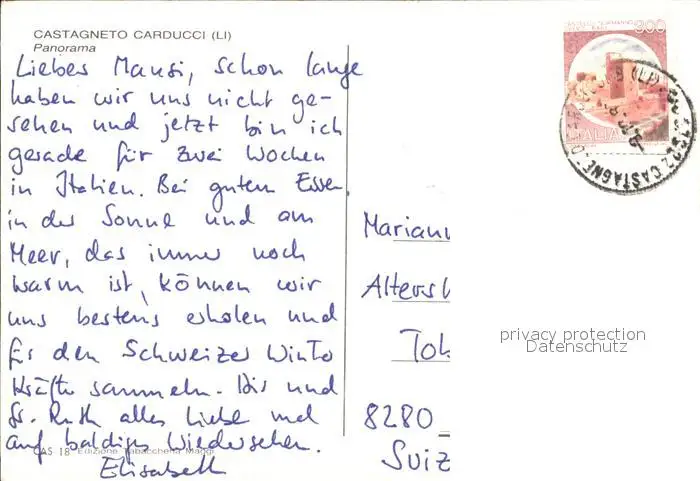 CASTAGNETO CARDUCCI (LI)
Panorama
Liebes Mausi, schon lange
haben wir uns nicht ge-
sehen und jetzt bin ich
gerade für zwei Wochen
in Italien. Bei gutem Essen,
in der Sonne und am
Meer, das immer noch
warm ist, können wir
uns bestens erholen und
für den Schweizer Winter
Kräfte sammeln. Dir und
Sr. Ruth alles Liebe und
auf baldiges Wiedersehen.
Elisabeth
CAS 18 Edizione Tabaccheria Maggi
800
ITALIA
CASTAGNE
Mariann
Alters
Tob
8280
Suiz
privacy protection
Datenschutz